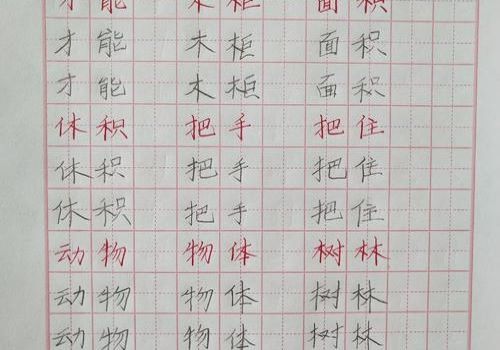 才能 木柜 面积
才能 木柜 面积
才能 木柜 面积
体积 把手 把住
体积 把手 把住
体积 把手 把住
动物 物体 树林
动物 物体 树林
动物 物体 树林